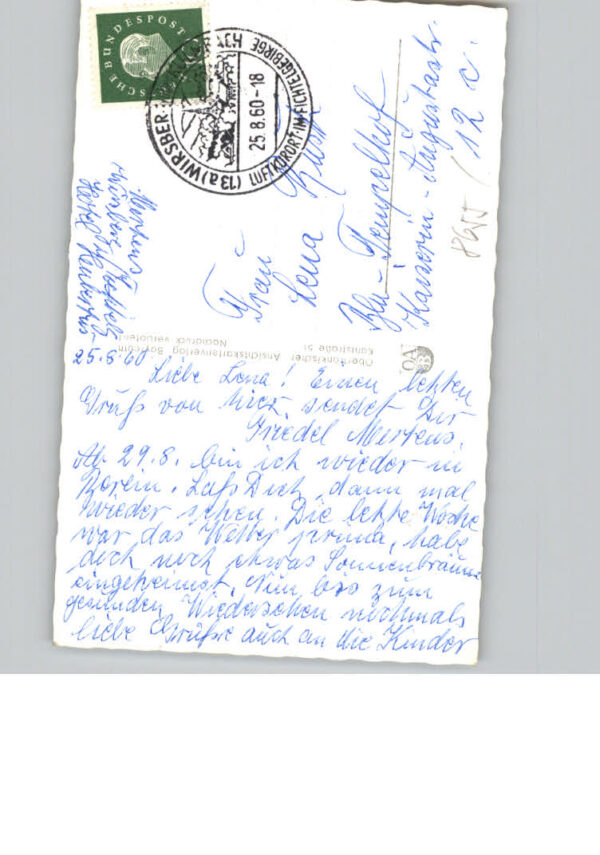 DEUTSCHE BUNDESPOST
(13a) WIRSBERG
LUFTKURORT · IM · FICHTELGEBIRGE
25.8.60-18
Mertens
Frau
Lena
Bln-Tempelhof
Kaiserin-Augustastr.
12 c.
Oberfränkischer Ansichtskartenverlag Bayreuth
Nachdruck verboten!
25.8.60
Liebe Lena! Einen letzten
Gruß von hier, sendet Dir
Friedel Mertens.
Ab 29.8. bin ich wieder in
Berlin. Laß Dich dann mal
wieder sehen. Die letzte Woche
war das Wetter prima, habe
doch noch etwas Sonnenbräune
eingeheimst. Nun bis zum
gesunden Wiedersehen nochmals
liebe Grüße auch an die Kinder